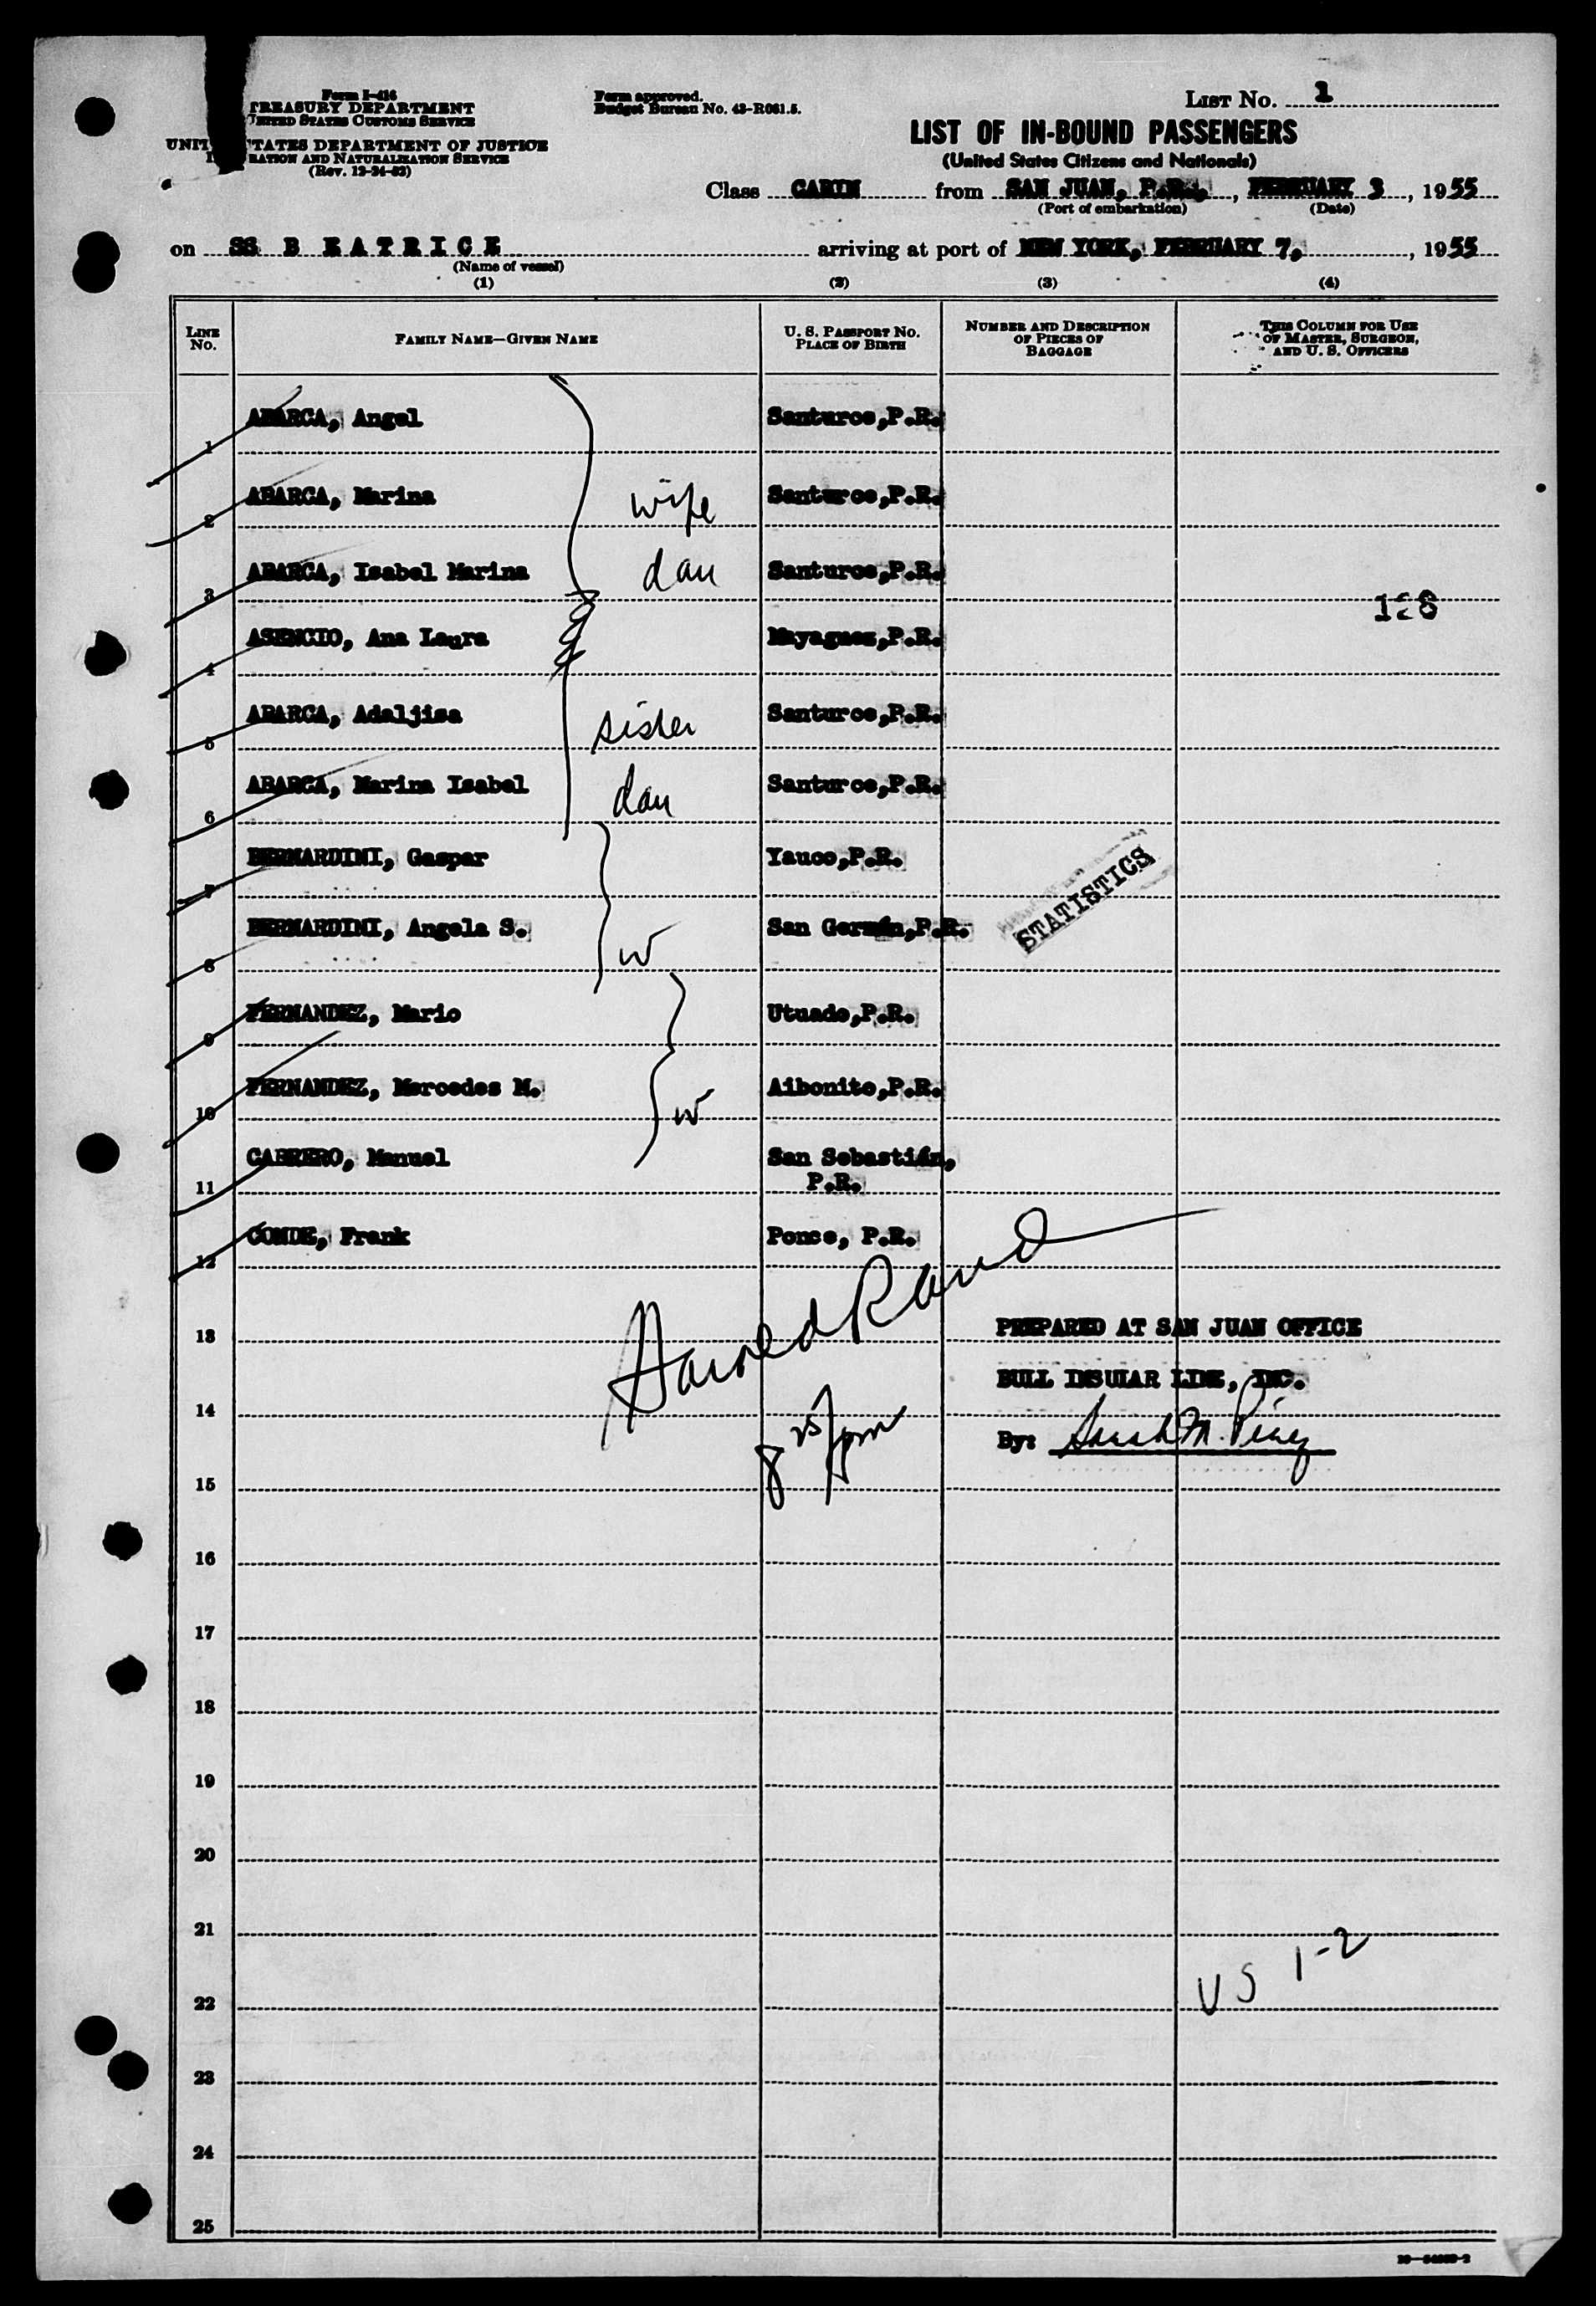 Form I-416
TREASURY DEPARTMENT
UNITED STATES CUSTOMS SERVICE
UNIT TATES DEPARTMENT OF JUSTICE
RATION AND NATURALIZATION SERVICE
(Rev. 12-24-52)
Form approved.
Budget Bureau No. 43-R081.5.
LIST No. 1
LIST OF IN-BOUND PASSENGERS
(United States Citizens and Nationals)
Class CABIN from SAN JUAN, P.R., FEBRUARY 3, 1955
(Port of embarkation) (Date)
on SS B E A T R I C E arriving at port of NEW YORK, FEBRUARY 7, 1955
(Name of vessel)
(1) (2) (3) (4)
LINE NO. FAMILY NAME—GIVEN NAME U. S. PASSPORT NO. PLACE OF BIRTH NUMBER AND DESCRIPTION OF PIECES OF BAGGAGE THIS COLUMN FOR USE OF MASTER, SURGEON, AND U. S. OFFICERS
1 ABARCA, Angel Santurce,P.R.
2 ABARCA, Marina wife Santurce,P.R.
3 ABARCA, Isabel Marina dau Santurce,P.R.
4 ASENCIO, Ana Laura Mayaguez,P.R.
5 ABARCA, Adaljisa sister Santurce,P.R.
6 ABARCA, Marina Isabel dau Santurce,P.R.
7 BERNARDINI, Gaspar Yauco,P.R.
STATISTICS
8 BERNARDINI, Angela S. w San Germán,P.R.
9 FERNANDEZ, Mario Utuado,P.R.
10 FERNANDEZ, Mercedes M. w Aibonito,P.R.
11 CABRERO, Manuel San Sebastián, P.R.
12 CONDE, Frank Ponce, P.R.
Harold Rand
13 PREPARED AT SAN JUAN OFFICE
BULL INSULAR LINE, INC.
14
8 25/pm
By:
15
16
17
18
19
20
21
US 1-2
22
23
24
25